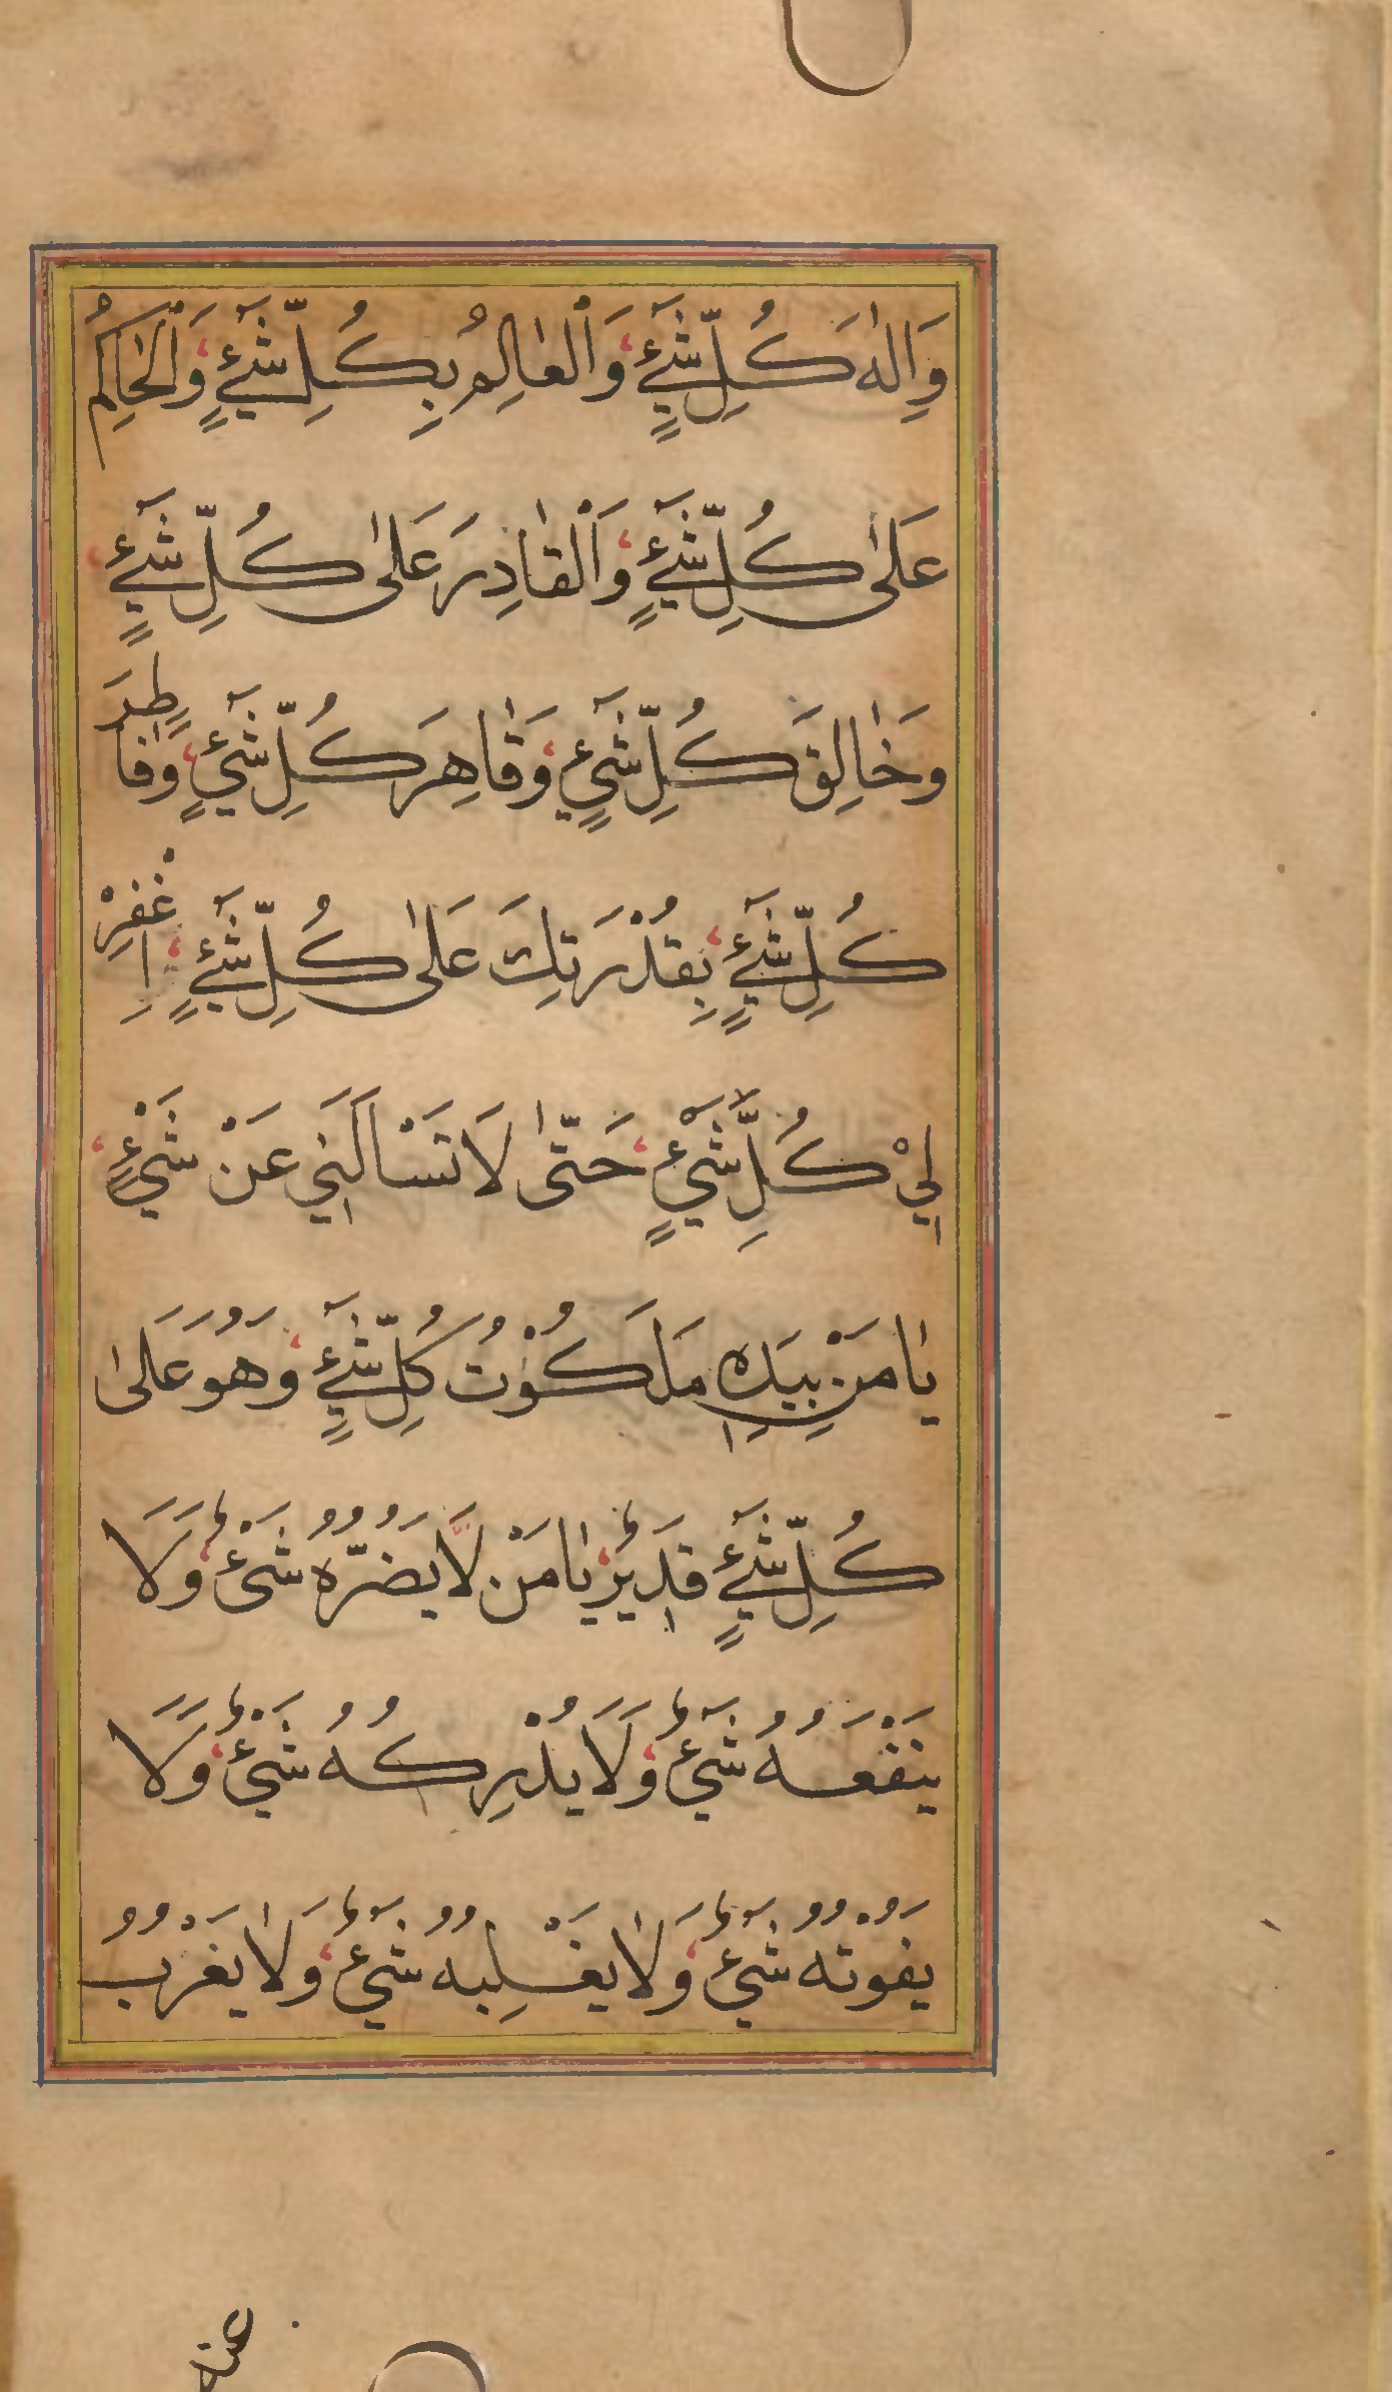 وَاِلٰهَ كُلِّ شَيْءٍ وَالْعٰالِمُ بِكُلِّ شَيْءٍ وَالْحٰاكِمُ
عَلٰى كُلِّ شَيْءٍ وَالْقٰادِرَ عَلٰى كُلِّ شَيْءٍ
وَخٰالِقَ كُلِّ شَيْءٍ وَقٰاهِرَ كُلِّ شَيْءٍ وَفٰاطِرَ
كُلِّ شَيْءٍ بِقُدْرَتِكَ عَلٰى كُلِّ شَيْءٍ اِغْفِرْ
لِيْ كُلَّ شَيْءٍ حَتّٰى لَا تَسْاَلَنِي عَنْ شَيْءٍ
يٰا مَنْ بِيَدِهِ مَلَكُوْتُ كُلِّ شَيْءٍ وَهُوَ عَلٰى
كُلِّ شَيْءٍ قَدِيْرٌ يٰا مَنْ لَا يَضُرُّهُ شَيْءٌ وَلَا
يَنْفَعُهُ شَيْءٌ وَلَا يُدْرِكُهُ شَيْءٌ وَلَا
يَفُوْتُهُ شَيْءٌ وَلٰا يَغْلِبُهُ شَيْءٌ وَلٰا يَغْرُبُ
عنه